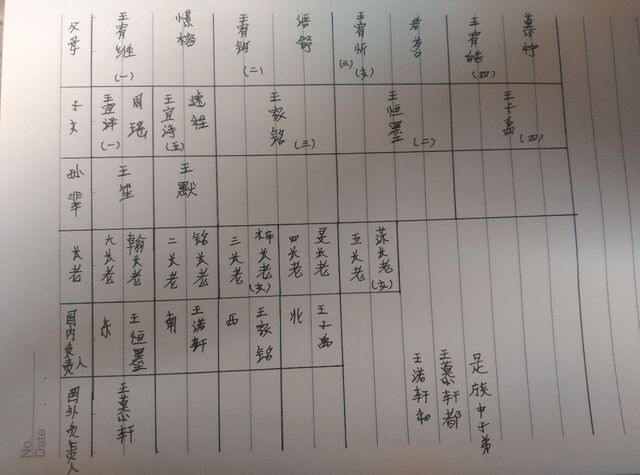 父母 王宥维(一) 王宥钧(二) 浯舒 王宥忻(三)(女) 君若 王宥皓(四) 慕柠
子女 王宜沣(一) 周瑶 王宜涛(五) 逸铨 王家铭(三) 王恒墨(二) 王子禹(四)
孙辈 王笙 王默
长老 大长老 翰长老 二长老 铭长老 三长老 梓长老(女) 四长老 旻长老 五长老 荻长老(女)
国内负责人 东 王恒墨 南 王诺轩 西 王家铭 北 王子禹
国外负责人 王慕轩
王诺轩和
王慕轩都
是族中子弟
No.
Date